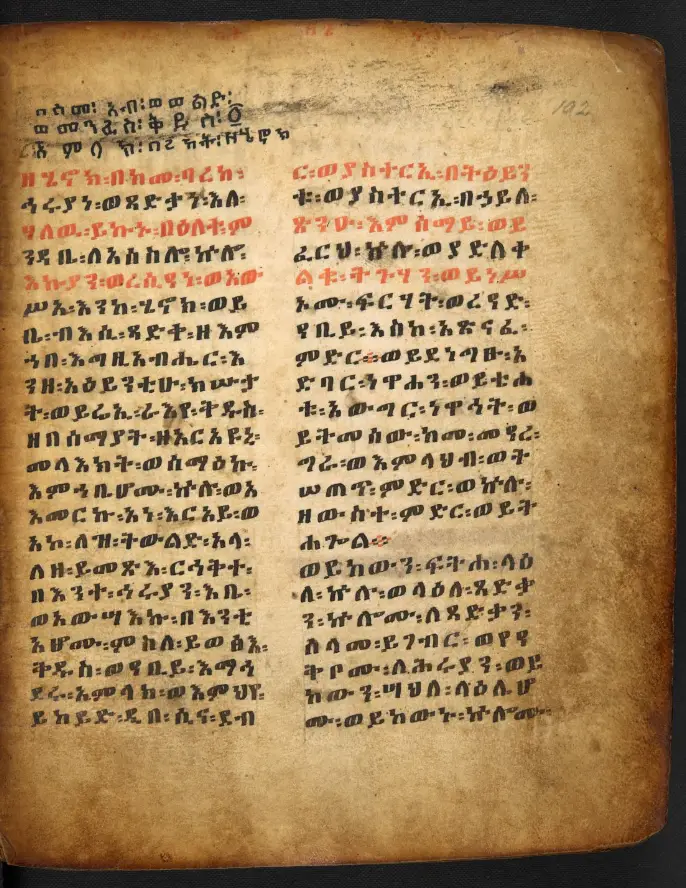 በስመ፡ አብ፡ ወወልድ፡
ወመንፈስ፡ ቅዱስ፡ ፩
አምላክ፡ በረከት፡ ዘሄኖክ
102
ዘሄኖክ፡በከመ፡ባረከ፡
ኅሩያነ፡ወጻድቃነ፡እለ፡
ሃለዉ፡ይኩኑ፡በዕለተ፡ም
ንዳቤ፡ለአሰስሎ፡ኵሎ፡
እኩያን፡ወረሲዓን፡ወአው
ሥአ፡እንከ፡ሄኖክ፡ወይ
ቤ፡ብእሲ፡ጻድቅ፡ዘእም
ኀበ፡እግዚአብሔር፡እ
ንዘ፡አዕይንቲሁ፡ክሡታ
ት፡ወይሬኢ፡ራእየ፡ቅዱስ፡
ዘበሰማያት፡ዘአርአዩኒ፡
መላእክት፡ወሰማዕኩ፡
እምኀቤሆሙ፡ኵሎ፡ወአ
እመርኩ፡አነ፡እርአይ፡ወ
አኮ፡ለዝ፡ትውልድ፡አላ፡
ለዘ፡ይመጽእ፡ርኅቅተ፡
በእንተ፡ኅሩያን፡እቤ፡
ወአውሣእኩ፡በእንቲ
አሆሙ፡ምስለ፡ይወፅእ፡
ቅዱስ፡ወዓቢይ፡እማኀ
ደሩ፡አምላክ፡ወእምህየ፡
ይከይድ፡ዲበ፡ሲና፡ደብ
ር፡ወያስተርኢ፡በትዕይን
ቱ፡ወያስተርኢ፡በኃይለ፡
ጽንዑ፡እምሰማይ፡ወይ
ፈርህ፡ኵሉ፡ወያድለቀ
ልቁ፡ትጉሃን፡ወይነሥ
ኦሙ፡ፍርሃት፡ወረዓድ፡
ዓቢይ፡እስከ፡አጽናፈ፡
ምድር፨ወይደነግፁ፡አ
ድባር፡ነዋኃን፡ወይቴሐ
ቱ፡አውግር፡ነዋኃት፡ወ
ይትመሰው፡ከመ፡መዓረ፡
ግራ፡ወእምላህብ፡ወት
ሠጠጥ፡ምድር፡ወኵሉ፡
ዘውስተ፡ምድር፡ወይት
ሐጐል፨
ወይከውን፡ፍትሐ፡ላዕ
ለ፡ኵሉ፡ወላዕለ፡ጻድቃ
ን፡ኵሎሙ፡ለጻድቃን፡
ሰላመ፡ይገብር፡ወየዓ
ቅቦሙ፡ለኅሩያን፡ወይ
ከውን፡ሣህል፡ላዕሌሆ
ሙ፡ወይከውኑ፡ኵሎሙ፡